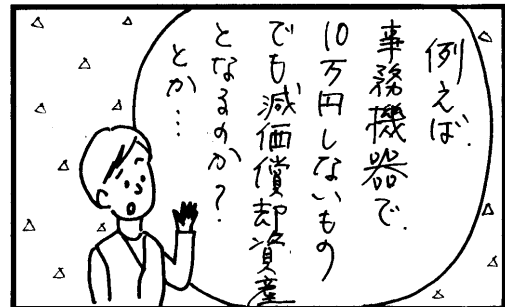 例えば、
事務機器で、
10万円しないもの
でも減価償却資産
となるのか？
とか…